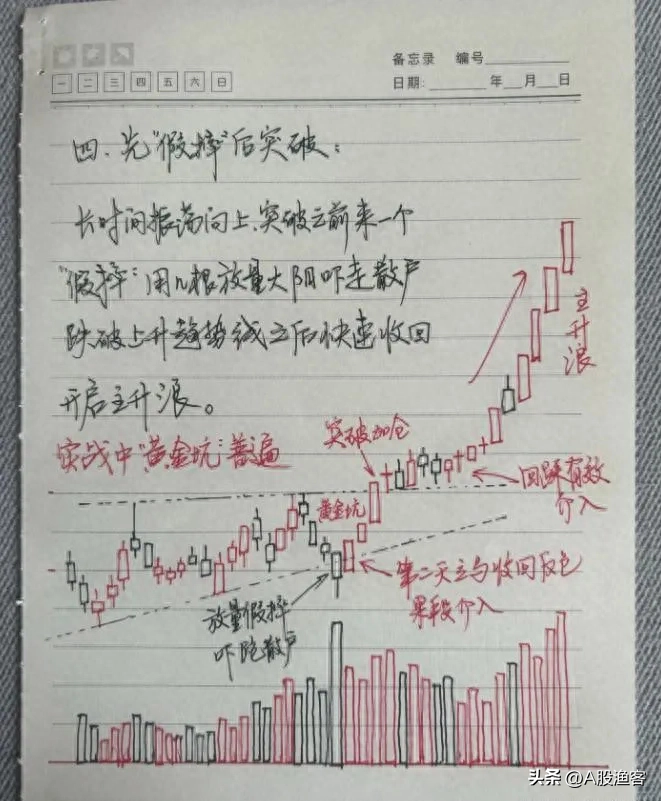 备忘录 编号
一 二 三 四 五 六 日
日期: 年 月 日
四、先“假摔”后突破:
长时间振荡向上、突破之前来一个
“假摔”:用几根放量大阴吓走散户
跌破上升趋势线之后快速收回
开启主升浪。
实战中“黄金坑”普遍
突破加仓
主升浪
黄金坑
回踩有效
介入
第二天立马收回反包
果断介入
放量假摔
吓跑散户
头条 @A股渔客